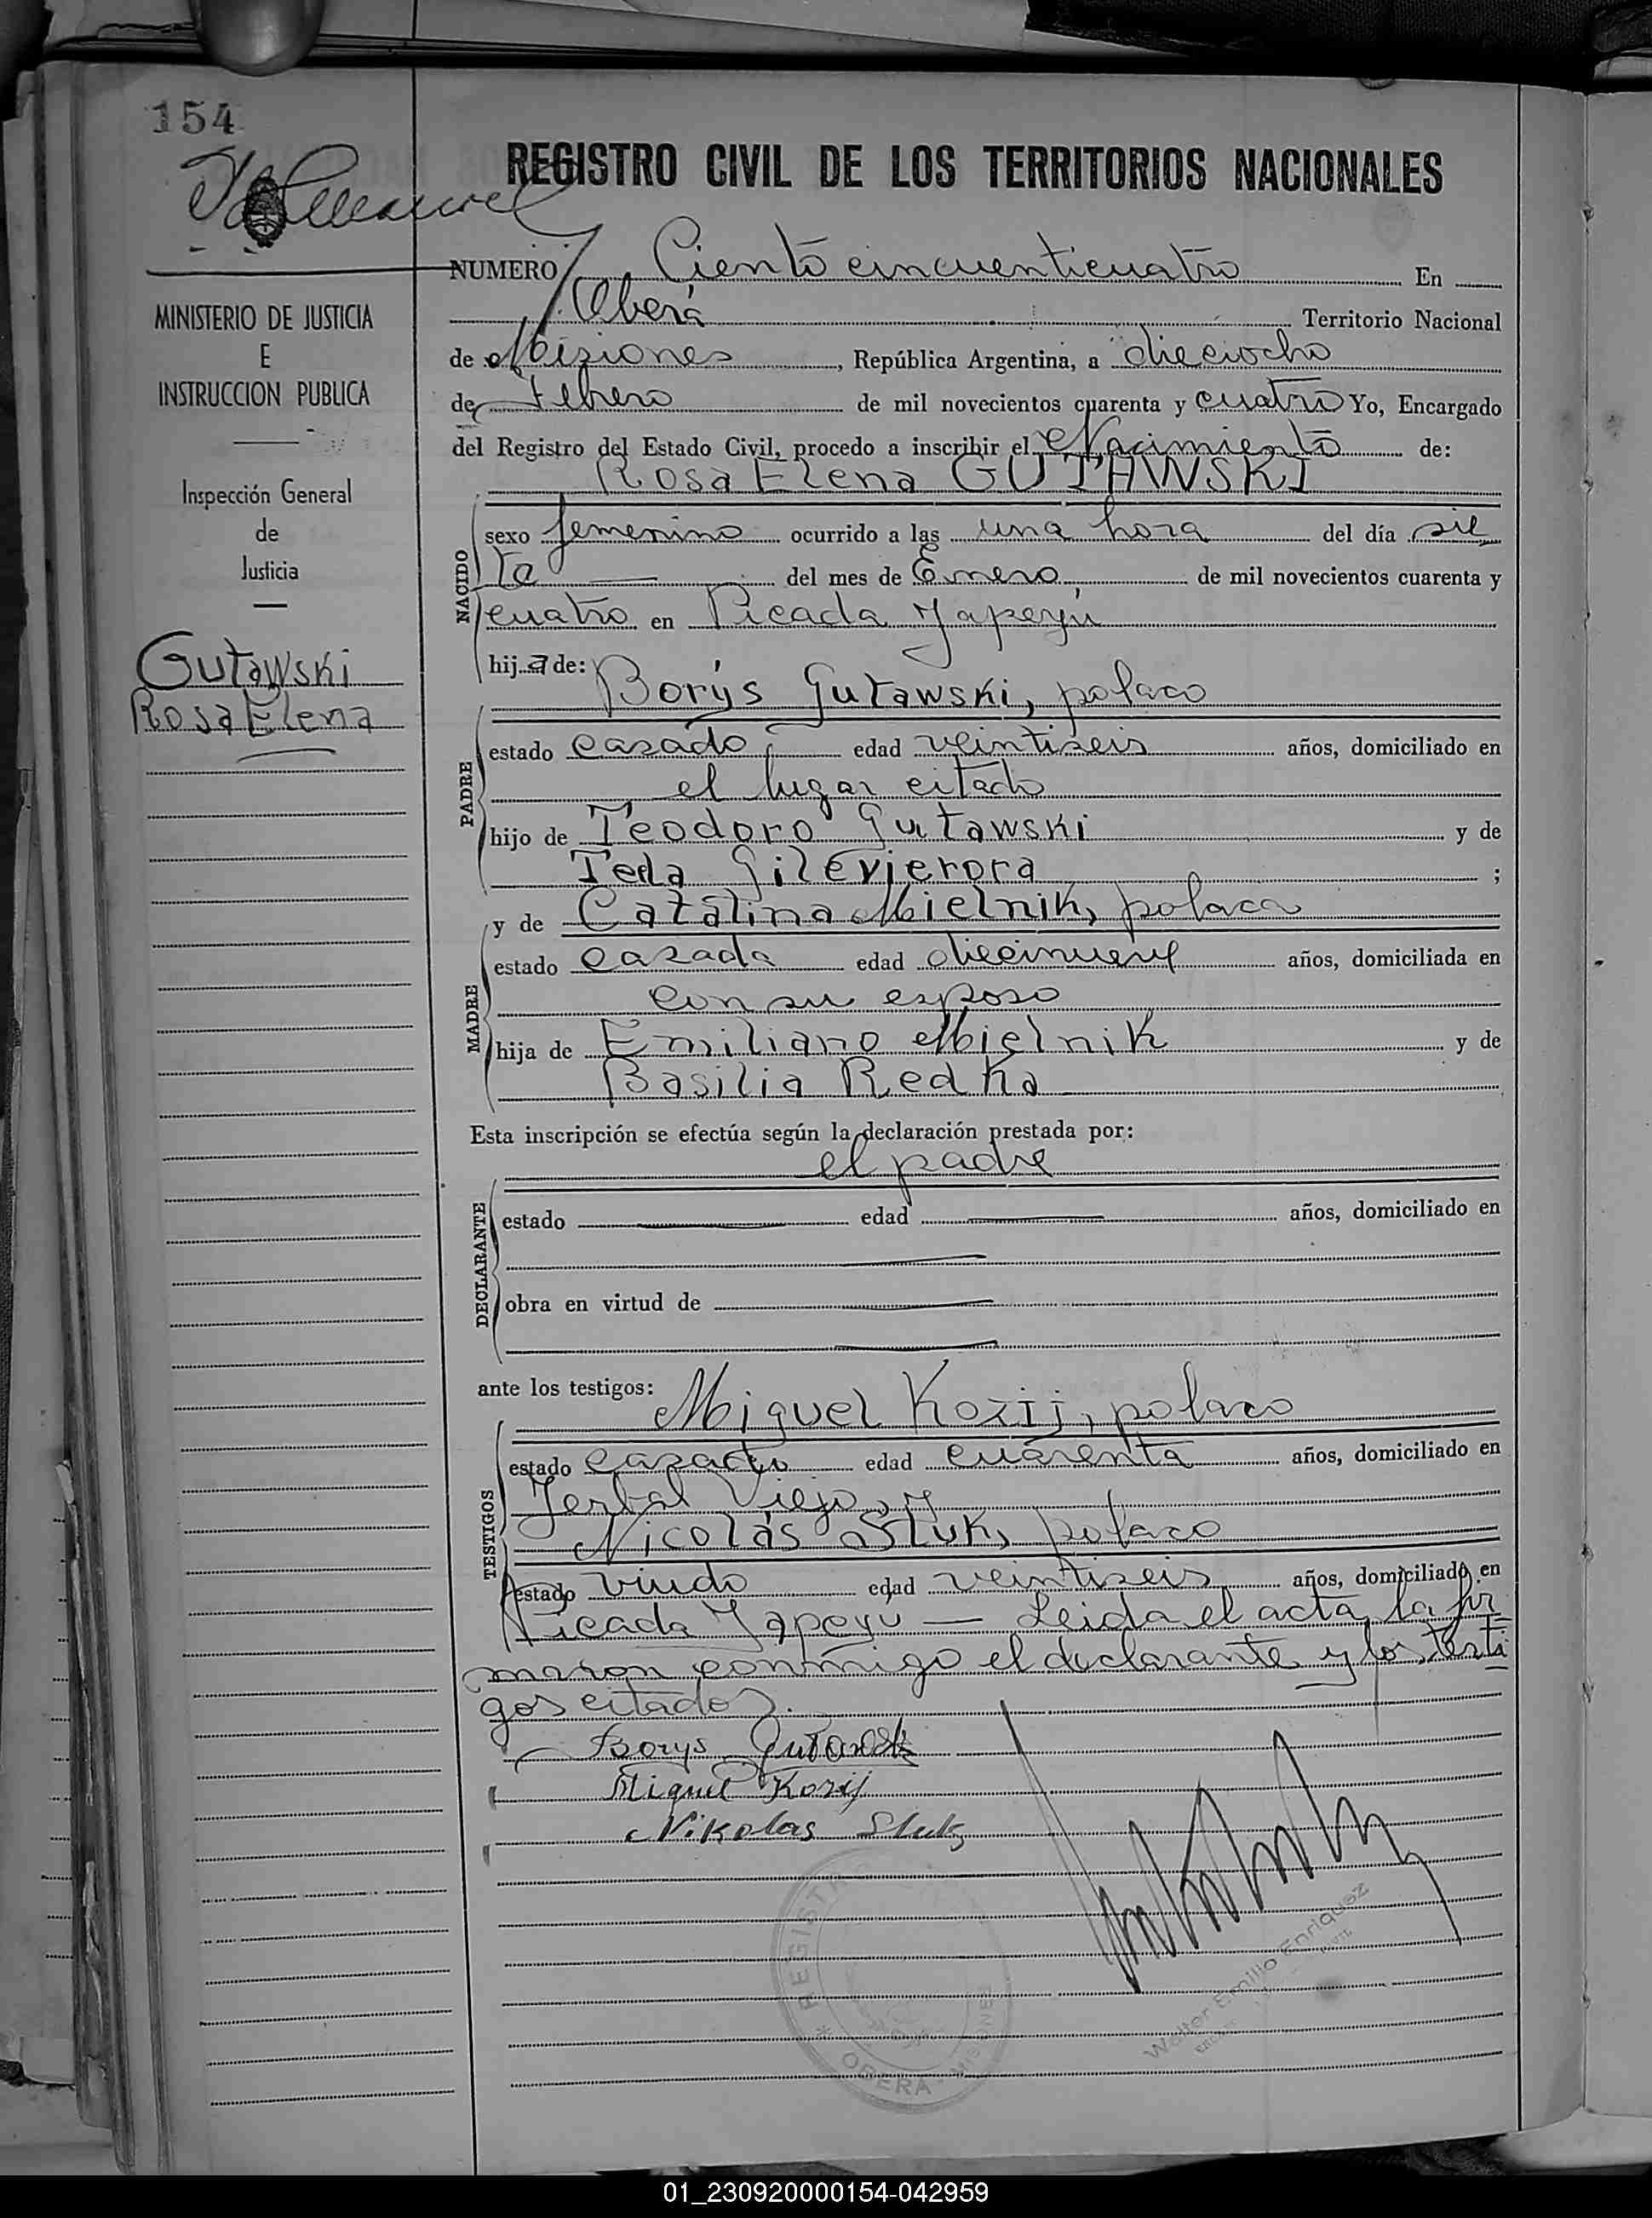 154
REGISTRO CIVIL DE LOS TERRITORIOS NACIONALES
NUMERO Ciento cincuenticuatro En
Oberá Territorio Nacional
de Misiones, República Argentina, a dieciocho
de Febrero de mil novecientos cuarenta y cuatro Yo, Encargado
del Registro del Estado Civil, procedo a inscribir el Nacimiento de:
Rosa Elena GUTAWSKI
sexo femenino ocurrido a las una hora del día sie
te del mes de Enero de mil novecientos cuarenta y
cuatro en Picada Yapeyú
hija de: Borys Gutawski, polaco
estado casado edad veintiseis años, domiciliado en
el lugar citado
hijo de Teodoro Gutawski y de
Tecla ;
y de Catalina Mielnik, polaca
estado casada edad diecinueve años, domiciliada en
con su esposo
hija de Emiliano Mielnik y de
Basilia Redka
Esta inscripción se efectúa según la declaración prestada por:
el padre
estado edad años, domiciliado en
obra en virtud de
ante los testigos:
Miguel Kozij, polaco
estado casado edad cuarenta años, domiciliado en
Yerbal Viejo, y
Nicolás Stuk, polaco
estado viudo edad veintiseis años, domiciliado en
Picada Yapeyú — Leida el acta, la fir
maron conmigo el declarante y los testi
gos citados.
Borys Gutawski
Miguel Kozij
Nikolas Stuk
MINISTERIO DE JUSTICIA
E
INSTRUCCION PUBLICA
Inspección General
de
Justicia
Gutawski
Rosa Elena
NACIDO
PADRE
MADRE
DECLARANTE
TESTIGOS
REGISTRO
OBERA
MISIONES
Walter Emilio Enriquez
01_230920000154-042959